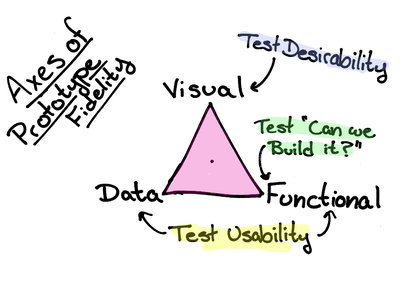 Axes of
Prototype
Fidelity
Test Desirability
Visual
Test "Can we
Build it?"
Data
Functional
Test Usability